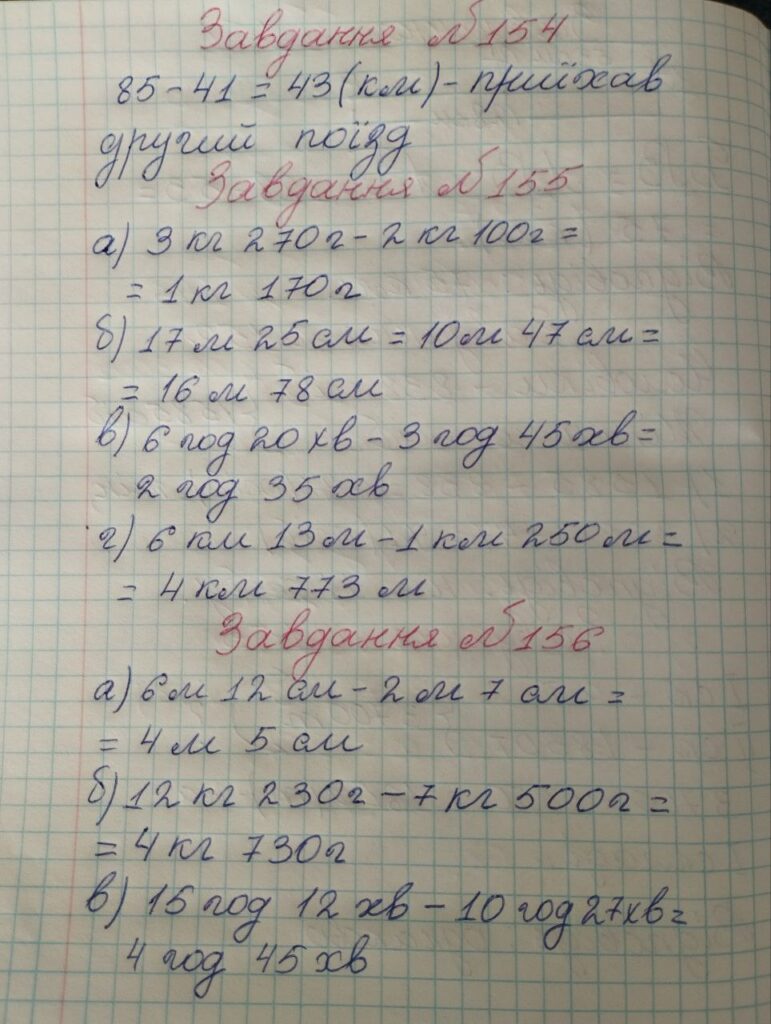 Завдання №154
85-41=43(км)-приїхав
другий поїзд
Завдання №155
а) 3 кг 270г-2 кг 100г=
=1кг 170г
б) 17м 25см=10м 47см=
=16м 78см
в) 6 год 20хв-3год 45хв=
2 год 35хв
г) 6 км 13м-1км 250м=
=4км 773м
Завдання №156
а) 6м 12см-2м 7см=
=4м 5см
б) 12кг 230г-7кг 500г=
=4кг 730г
в) 15год 12хв-10год27хв=
4 год 45хв